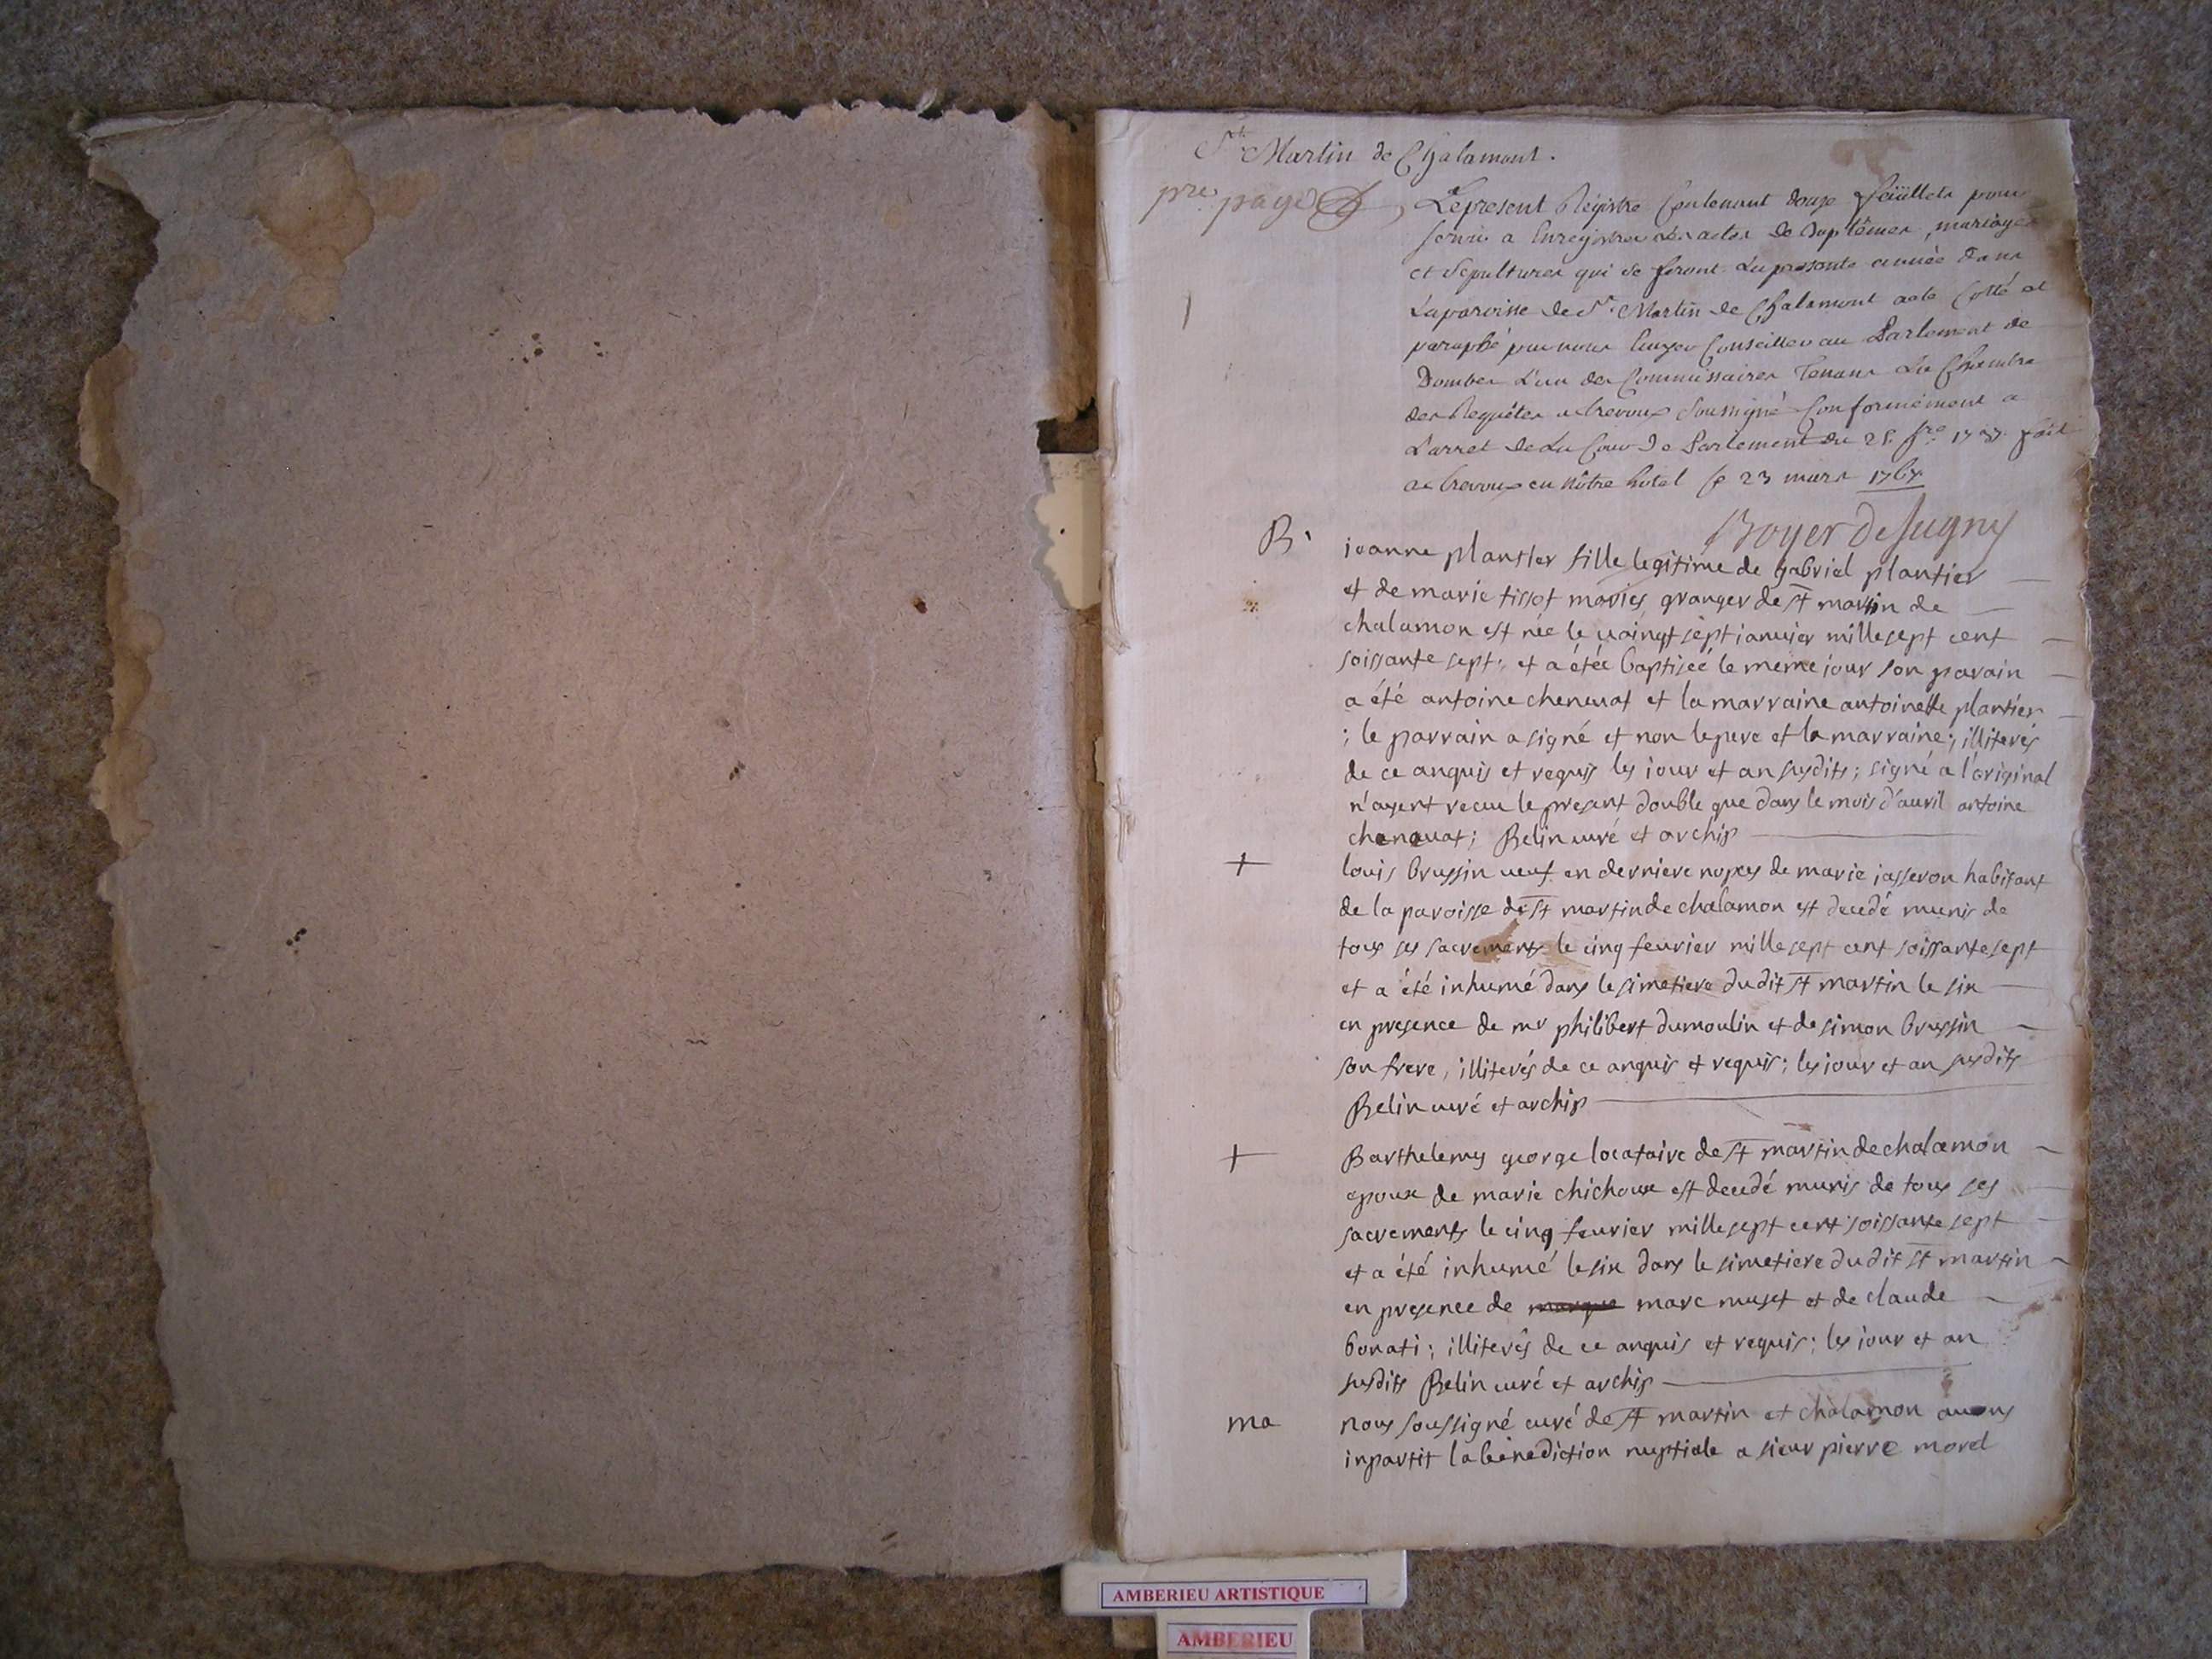 St. Martin de Chalamont.
pre. page
Le present Régistre Contenant douze feüillets pour
servir a Enregistrer Les actes de Baptêmes, mariages
et Sepultures qui se feront La presente année dans
La paroisse de St. Martin de Chalamont a été Cotté et
paraphé par nous Ecuyer Conseiller au Parlement de
Dombes L'un des Commissaires Tenant La Chambre
des Requêtes a trevoux Soussigné Conformément a
L'arret de La Cour de Parlement du 25. fait
a trevoux en nôtre hotel Ce 23 mars 1767
Boyer de Sugny
B.
ieanne plantier fille legitime de gabriel plantier
et de marie tissot mariés granger de st martin de
chalamon est née le vaingt sept ianvier mille sept cent
soissante sept, et a étée baptiseé le meme iour son parain
a été antoine chenevat et la marraine antoinette plantier
; le parrain a signé et non le pere et la marraine; illiterés
de ce anquis et requis les iour et an susdits; signé a l'original
n'ayent recuu le present double que dans le mois d'avril antoine
chenavat; Belin curé et archip
+
louis brussin veuf en derniere nopces de marie iasseron habitant
de la paroisse de st martin de chalamon est decedé munis de
tous ses sacrements le cinq feurier mille sept cent soissante sept
et a été inhumé dans le simetiere dudit st martin le six
en presence de mr philibert dumoulin et de simon brussin
son frere, illiterés de ce anquis et requis; les iour et an susdits
Belin curé et archip
+
Barthelemy george locataire de st martin de chalamon
epoux de marie chichoux est decedé munis de tous ses
sacrements le cinq feurier mille sept cent soissante sept
et a été inhumé le six dans le simetiere dudit st martin
en presence de marque marc muset et de claude
bonati; illiterés de ce anquis et requis; les iour et an
susdits Belin curé et archip
ma
nous soussigné curé de st martin et chalamon auons
inpartit la bénediction nuptiale a sieur pierre morel
AMBERIEU ARTISTIQUE
AMBERIEU